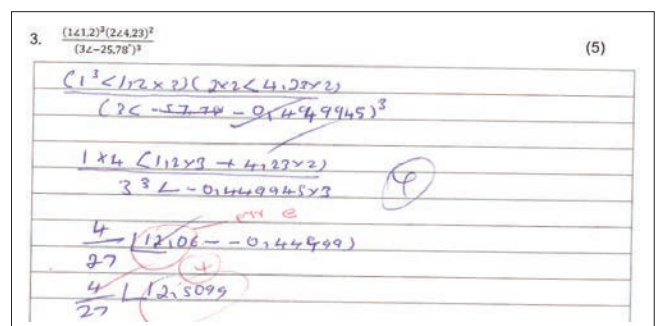 3. (1∠1,2)³(2∠4,23)² / (3∠−25,78°)³ (5)
(1³<1,2×3)(2×2<4,23×2)
(3< -57.78 -0,449945)³
1×4 <1,2×3 + 4,23×2)
3³∠-0,449945×3
4/27 ∠12,06--0,44999)
+
4/27 ∠12,5099